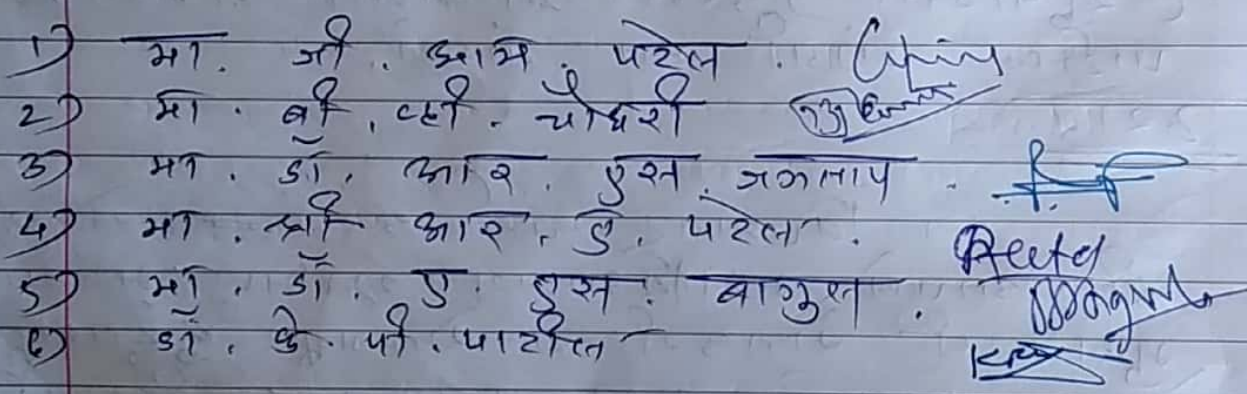 1) मा. जी. आय. पटेल.
2) मा. बी. व्ही. चौधरी
3) मा. डॉ. आर. एस. जगताप.
4) मा. श्री आर. डी. पटेल.
5) मा. डॉ. ए. एस. बागुल.
6) डॉ. के. पी. पाटील